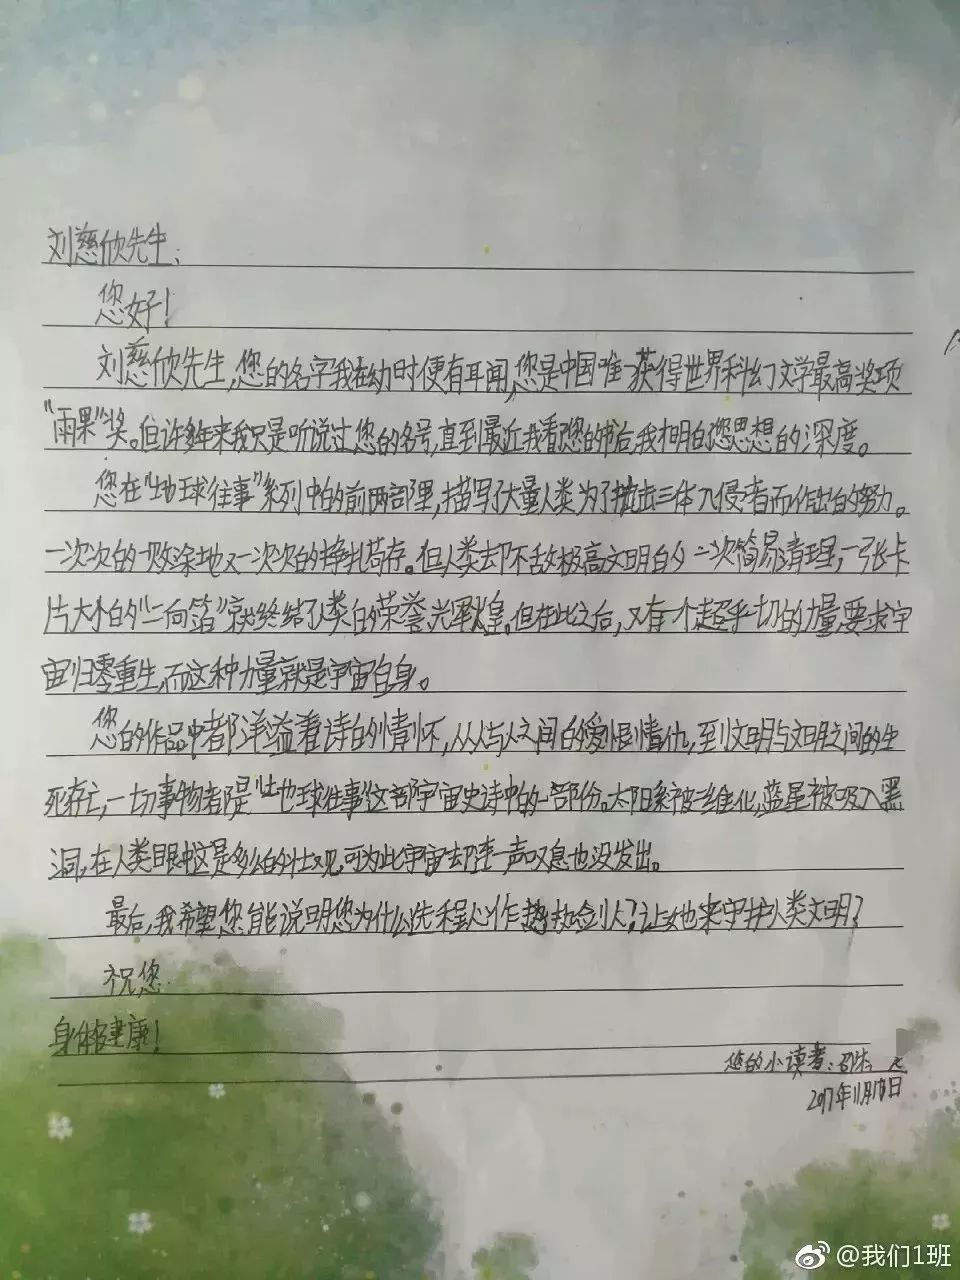 刘慈欣先生:
您好!
刘慈欣先生,您的名字我在幼时便有耳闻,您是中国唯一获得世界科幻文学最高奖项
“雨果”奖。但许多年来我只是听说过您的名号,直到最近我看您的书后,我才明白您思想的深度。
您在“地球往事”系列中的前两部里,描写了大量人类为了抗击三体入侵者而作出的努力。
一次次的一败涂地又一次次的挣扎苟存。但人类却不敌极高文明的一次简易清理,一张卡
片大小的“二向箔”就终结了人类的荣誉、光辉煌。但在此之后,又有一个超乎一切的力量要求宇
宙归零重生,而这种力量就是宇宙自身。
您的作品中都洋溢着诗的情怀,从人与人之间的爱恨情仇,到文明与文明之间的生
死存亡,一切事物都是“地球往事”这部宇宙史诗中的一部份。太阳系被二维化,蓝星被吸入黑
洞,在人类眼中这是多么的壮观,可为此宇宙却连一声叹息也没发出。
最后,我希望您能说明您为什么选程心作执剑人?让她来守护人类文明?
祝您
身体健康!
您的小读者:
2017年11月18日
@我们1班